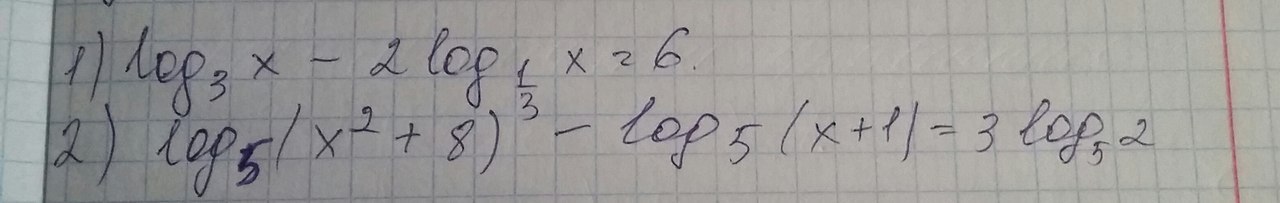 1) log₃ x - 2 log_{1/3} x = 6.
2) log₅(x² + 8) - log₅(x+1) = 3 log₅ 2